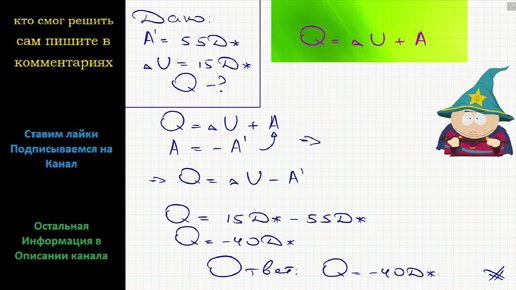 кто смог решить
сам пишите в
комментариях
Ставим лайки
Подписываемся на
Канал
Остальная
Информация в
Описании канала
Дано:
A' = 55Дж
ΔU = 15Дж
Q - ?
Q = ΔU + A
Q = ΔU + A
A = - A' ⇒
⇒ Q = ΔU - A'
Q = 15Дж - 55Дж
Q = -40Дж
Ответ: Q = -40Дж